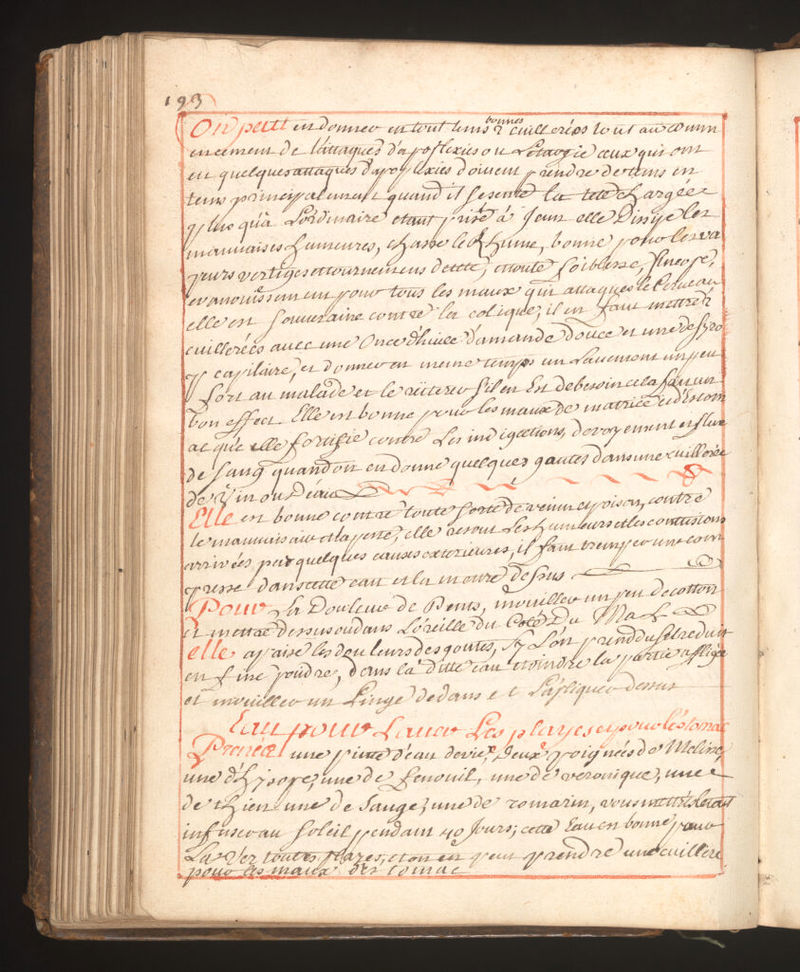 193
On peut en donner en tout tems 2 bonnes cuillerées tout au comm
encement de l'attaques d'apoplexies ou Letargie ceux qui ont
eu quelques attaques d'apoplexies doivent prendre de tems en
tems principalement quand il se sente la tete chargée
plus qu'à Lordinaire etant prise à jeun elle Dissipe les
mauvaises humeures, chasse le Rhume, bonne pour les va
peurs vertiges ettournemens detete, ettoute foiblesse, sincope,
evanouissement pour tous les maux qui attaques le Cerveau
elle est souveraine contre la colique, il en faut mettre 2
cuillerées avec une Once dhuile damande Douce et une de syro
p capilaire, et donner en meme temps un Lavement un peu
fort au malade et le réiterer s'il en Est de besoin cela fait un
bon effect. Elle est bonne pour les maux de matrice et d'Estom
ac quelle fortifie contre Les indigestions, devoyement et flux
de sang quand on en donne quelques goutes dans une cuillerée
de Vin ou D'eau
Elle est bonne contre toute sorte de venin et poison, contre
le mauvais air et la peste, elle resout Les humeurs et les contusions
arrivées par quelques causes exterieures, il faut tremper une com
presse dans cette eau et la mettre dessus
Pour La Douleur de Dents, mouiller un peu de cotton
et mettre Dessus ou dans Loreille du Coté Du Mal
elle apaise les douleurs des goutes, sy Lon prend du sel reduit
en fine poudre, dans la ditte eau etoindre la partie affligée
et mouiller un Linge dedans et Lapliquer dessus
Eau pour Laver Les playes et pour lestomac
Prenez une pinte d'eau devie, Deux poignées de Meline,
une d'hysope, une de fenouil, une de veronique, une
de thien une de Sauge, une de romarin, vous mettrés le tout
infuser au soleil pendant 40 Jours; cette Eau en bonne pour
La Ver toutes plazes, et on en peut prendre une cuillere
pour les maux des tomac